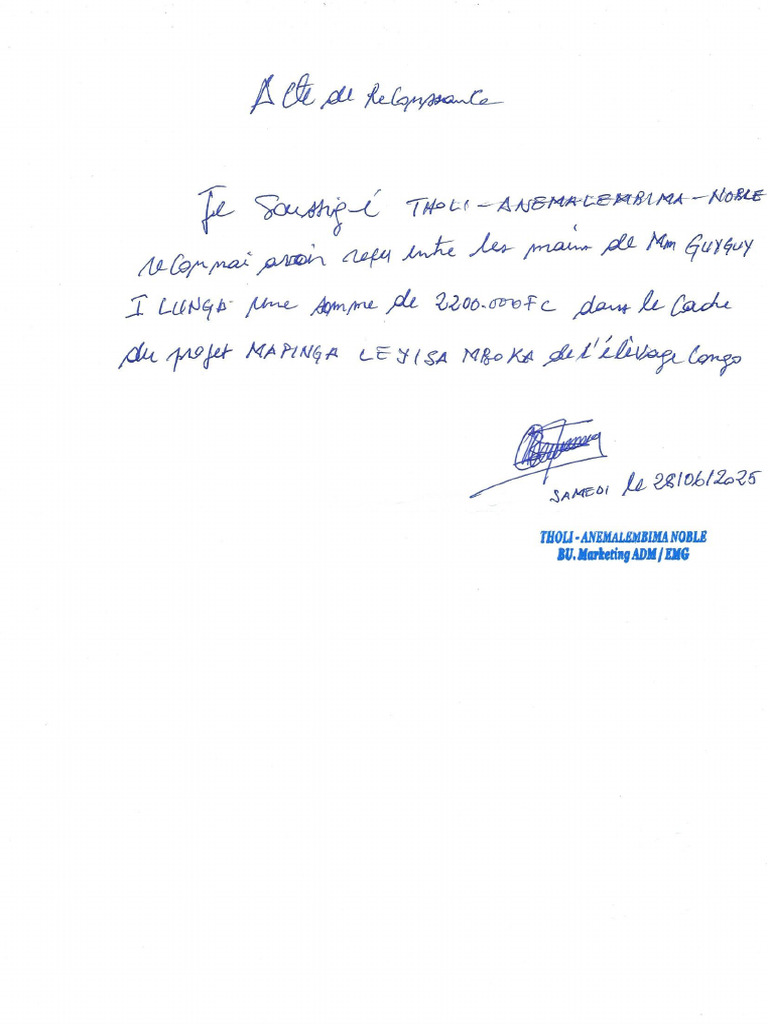 Acte de Reconnssance
Je Soussigé THOLI-ANEMALEMBIMA-NOBLE
reconnai avoir reçu entre les mains de Mm GUYGUY
ILUNGA une somme de 2200.000FC dans le Cadre
du projet MAPINGA LEYISA MBOKA de l'élèvage Congo
SAMEDI le 28/06/2025
THOLI - ANEMALEMBIMA NOBLE
BU. Marketing ADM / EMG